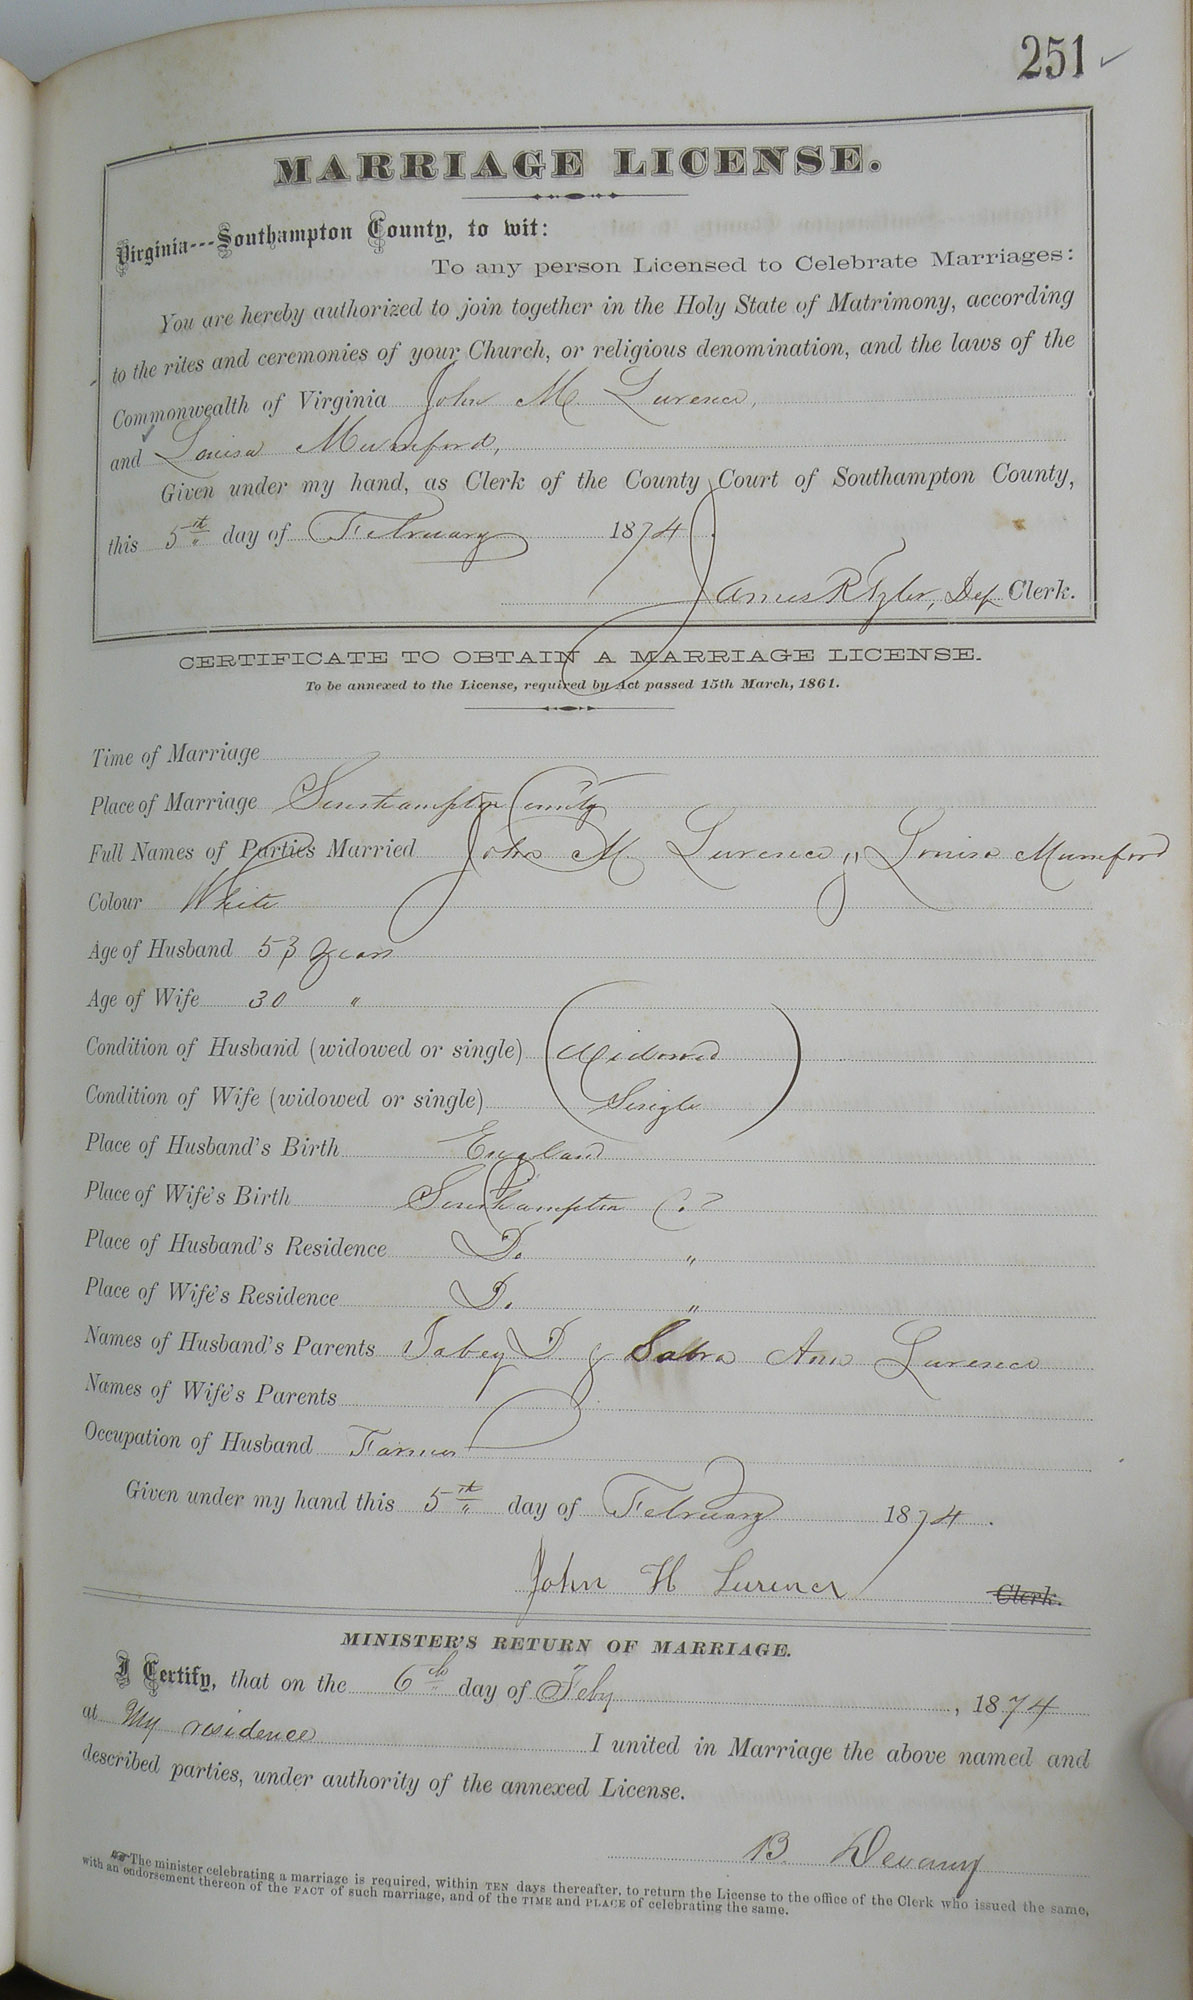 251
MARRIAGE LICENSE.
Virginia---Southampton County, to wit:
To any person Licensed to Celebrate Marriages:
You are hereby authorized to join together in the Holy State of Matrimony, according
to the rites and ceremonies of your Church, or religious denomination, and the laws of the
Commonwealth of Virginia John M. Lurence,
and Louisa Mumford,
Given under my hand, as Clerk of the County Court of Southampton County,
this 5th day of February 1874
James R Tyler, Dep Clerk.
CERTIFICATE TO OBTAIN A MARRIAGE LICENSE.
To be annexed to the License, required by Act passed 15th March, 1861.
Time of Marriage
Place of Marriage Southampton County
Full Names of Parties Married John M. Lurence, Louisa Mumford
Colour White
Age of Husband 53 years
Age of Wife 30 "
Condition of Husband (widowed or single) Widowed
Condition of Wife (widowed or single) Single
Place of Husband's Birth England
Place of Wife's Birth Southampton Co.
Place of Husband's Residence D. "
Place of Wife's Residence D. "
Names of Husband's Parents Tabey D & Sabra Ann Lurence
Names of Wife's Parents
Occupation of Husband Farmer
Given under my hand this 5th day of February 1874.
John H Lurence Clerk.
MINISTER'S RETURN OF MARRIAGE.
I Certify, that on the 6th day of Feby, 1874
at My residence I united in Marriage the above named and
described parties, under authority of the annexed License.
B. Devany
The minister celebrating a marriage is required, within TEN days thereafter, to return the License to the office of the Clerk who issued the same,
with an endorsement thereon of the FACT of such marriage, and of the TIME and PLACE of celebrating the same.